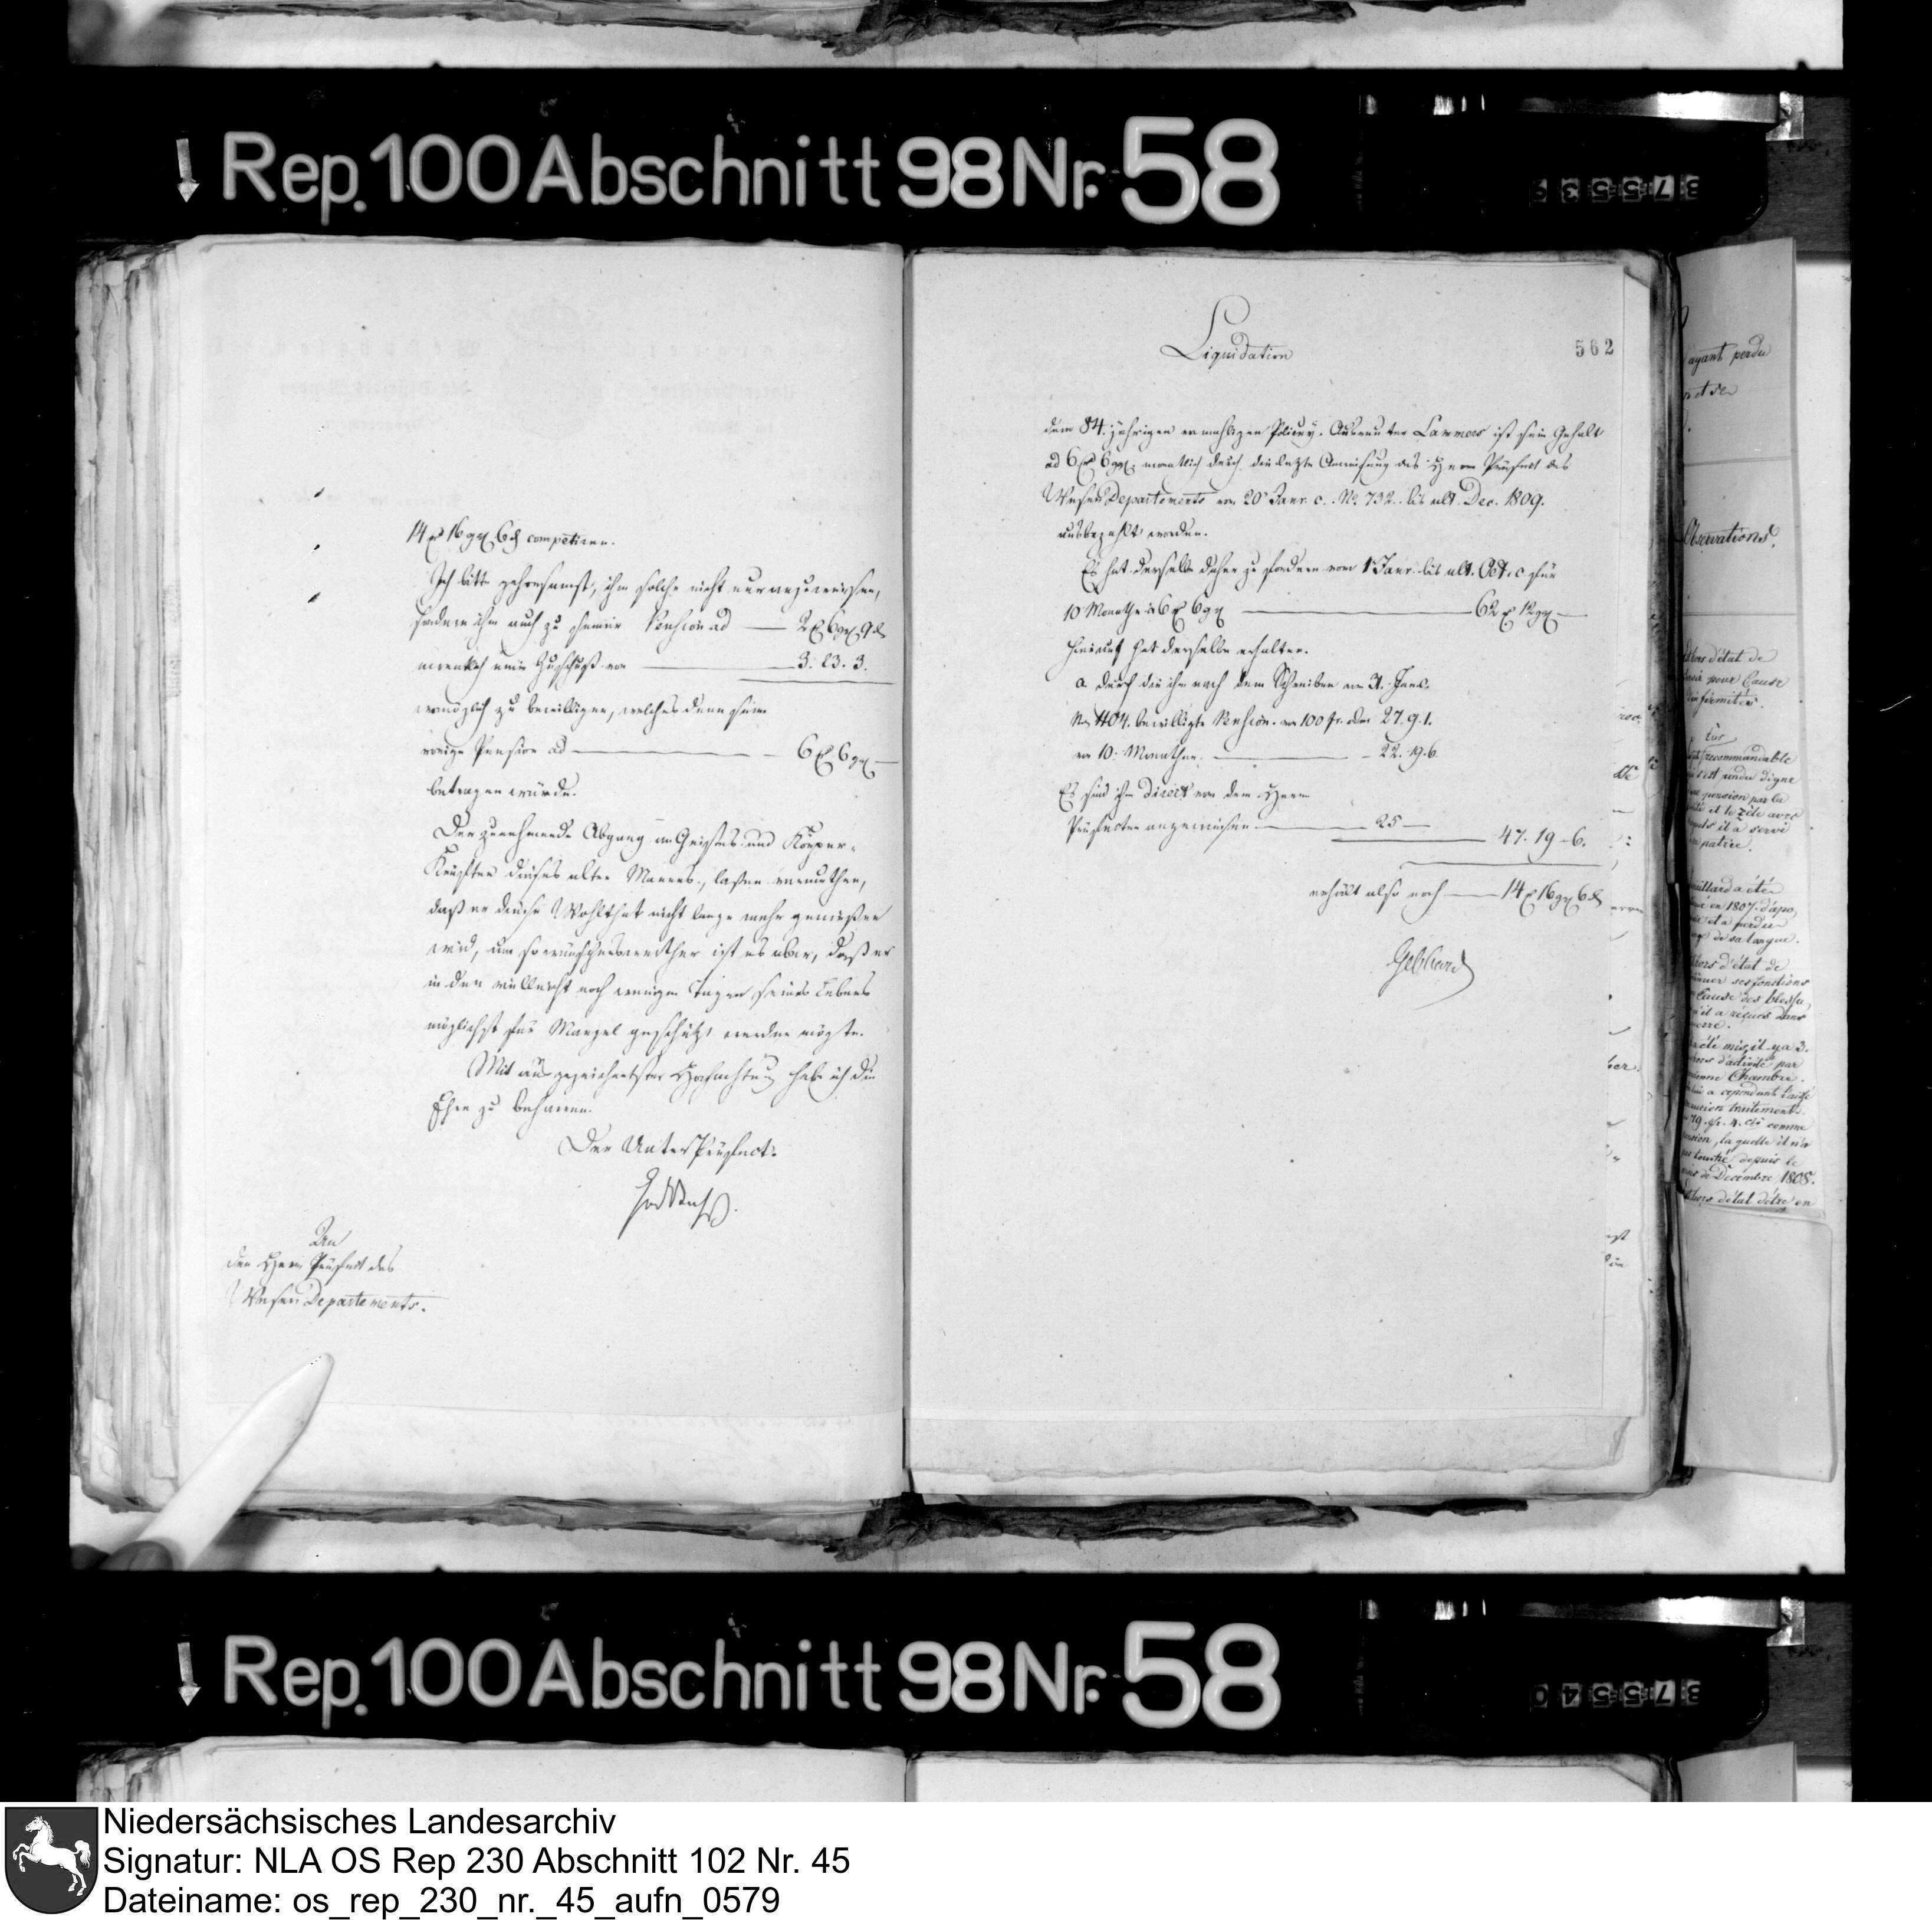 Rep. 100 Abschnitt 98 Nr. 58
14 16 ggr 6 competiren.
Ich bitte gehorsamst, ihm solche nicht nur anzuweisen,
sondern ihm auch zu seiner Pension ad 2 6 ggr 9
monatlich einen Zuschuß von 3. 23. 3.
womöglich zu bewilligen, welches denn seine
vorige Pension ad 6 6 ggr
betragen würde.
Der zunehmende Abgang an Geistes und Körper-
Kräften dieses alten Mannes, laßen vermuthen,
daß er diese Wohlthat nicht lange mehr genießen
wird, um so wünschenswerther ist es aber, daß er
in den vielleicht noch wenigen Tagen seines Lebens
möglichst für Mangel geschützt werden mögte.
Mit ausgezeichneter Hochachtung habe ich die
Ehre zu beharren.
Der Unter Präfect.
An
den Herrn Präfect des
Weser Departements.
562
Liquidation
dem 84. jährigen vormahligen Policey. Lammers ist sein Gehalt
ad 6 6 ggr. monatlich durch die letzte Anweisung des Herrn Präfect des
Weser Departements vom 20 Janr. c. No. 732. bis ult. Dec. 1809.
ausbezahlt worden.
Es hat derselbe daher zu fordern vom 1 Janr. bis ult. Oct. c. für
10 Monathe à 6 6 ggr 62 12 ggr
Hierauf hat derselbe erhalten.
a. durch die ihm nach dem Schreiben vom 31.
No. 1104. bewilligte Pension. von 100 fr. oder 27. 9. 1.
von 10. Monathen. 22. 19. 6.
Es sind ihm direct von dem Herrn
Präfecten angewiesen 25
47. 19 6.
erhält also noch 14 16 ggr 6
Gebhard
ayant perdu
Observations.
hors d'état de
pour cause
d'infirmités.
recommandable
s'est rendu digne
pension par la
et le zèle avec
il a servi
patrie.
a été
en 1807. d'apo
et a perdu
de sa langue.
hors d'état de
ses fonctions
cause des blessu
qu'il a reçues dans
été mis, il y a 3.
d'activité par
Chambre.
a cependant
traitement
79. fr. 4. cs. comme
pension, laquelle il n'a
touché depuis le
de Décembre 1808.
hors d'état d'être en
Rep. 100 Abschnitt 98 Nr. 58
Niedersächsisches Landesarchiv
Signatur: NLA OS Rep 230 Abschnitt 102 Nr. 45
Dateiname: os_rep_230_nr._45_aufn_0579